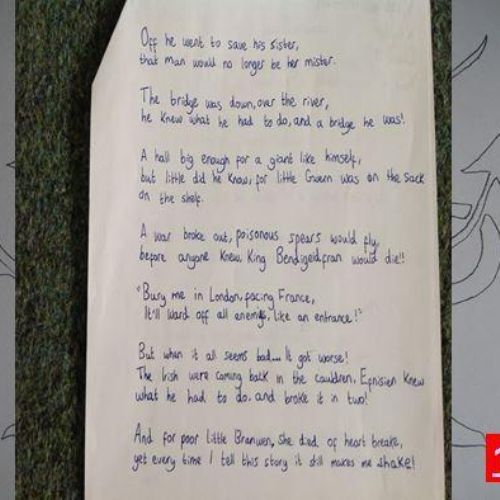 Off he went to save his sister,
that man would no longer be her mister.
The bridge was down, over the river,
he knew what he had to do, and a bridge he was!
A hall big enough for a giant like himself,
but little did he know, for little Gwern was on the sack
on the shelf.
A war broke out, poisonous spears would fly,
before anyone knew, King Bendigeidfran would die!!
"Bury me in London, facing France,
It'll ward off all enemys, like an entrance!"
But when it all seems bad... It got worse!
The Irish were coming back in the cauldren, Efnisien knew
what he had to do, and broke it in two!
And for poor little Branwen, she died of heart breake,
yet every time I tell this story it still makes me shake!